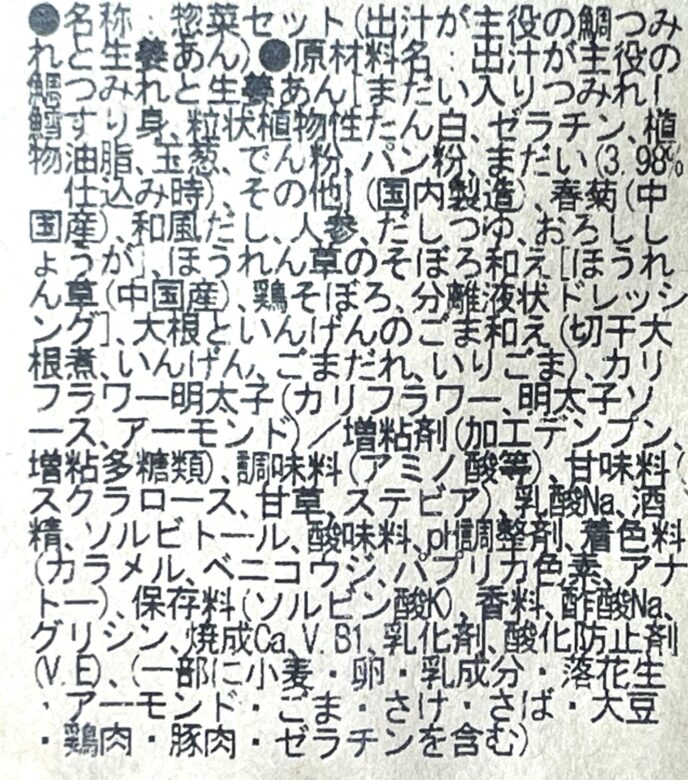 ●名称:惣菜セット(出汁が主役の鯛つみ
れと生姜あん)●原材料名:出汁が主役の
鯛つみれと生姜あん[まだい入りつみれ[
鱈すり身、粒状植物性たん白、ゼラチン、植
物油脂、玉葱、でん粉、パン粉、まだい(3.98%
仕込み時)、その他](国内製造)、春菊(中
国産)、和風だし、人参、だしつゆ、おろしし
ょうが]、ほうれん草のそぼろ和え[ほうれ
ん草(中国産)、鶏そぼろ、分離液状ドレッシ
ング]、大根といんげんのごま和え(切干大
根煮、いんげん、ごまだれ、いりごま)、カリ
フラワー明太子(カリフラワー、明太子ソ
ース、アーモンド)/増粘剤(加工デンプン、
増粘多糖類)、調味料(アミノ酸等)、甘味料(
スクラロース、甘草、ステビア)、乳酸Na、酒
精、ソルビトール、酸味料、pH調整剤、着色料
(カラメル、ベニコウジ、パプリカ色素、アナ
トー)、保存料(ソルビン酸K)、香料、酢酸Na、
グリシン、焼成Ca、V.B1、乳化剤、酸化防止剤
(V.E)、(一部に小麦・卵・乳成分・落花生
・アーモンド・ごま・さけ・さば・大豆
・鶏肉・豚肉・ゼラチンを含む)